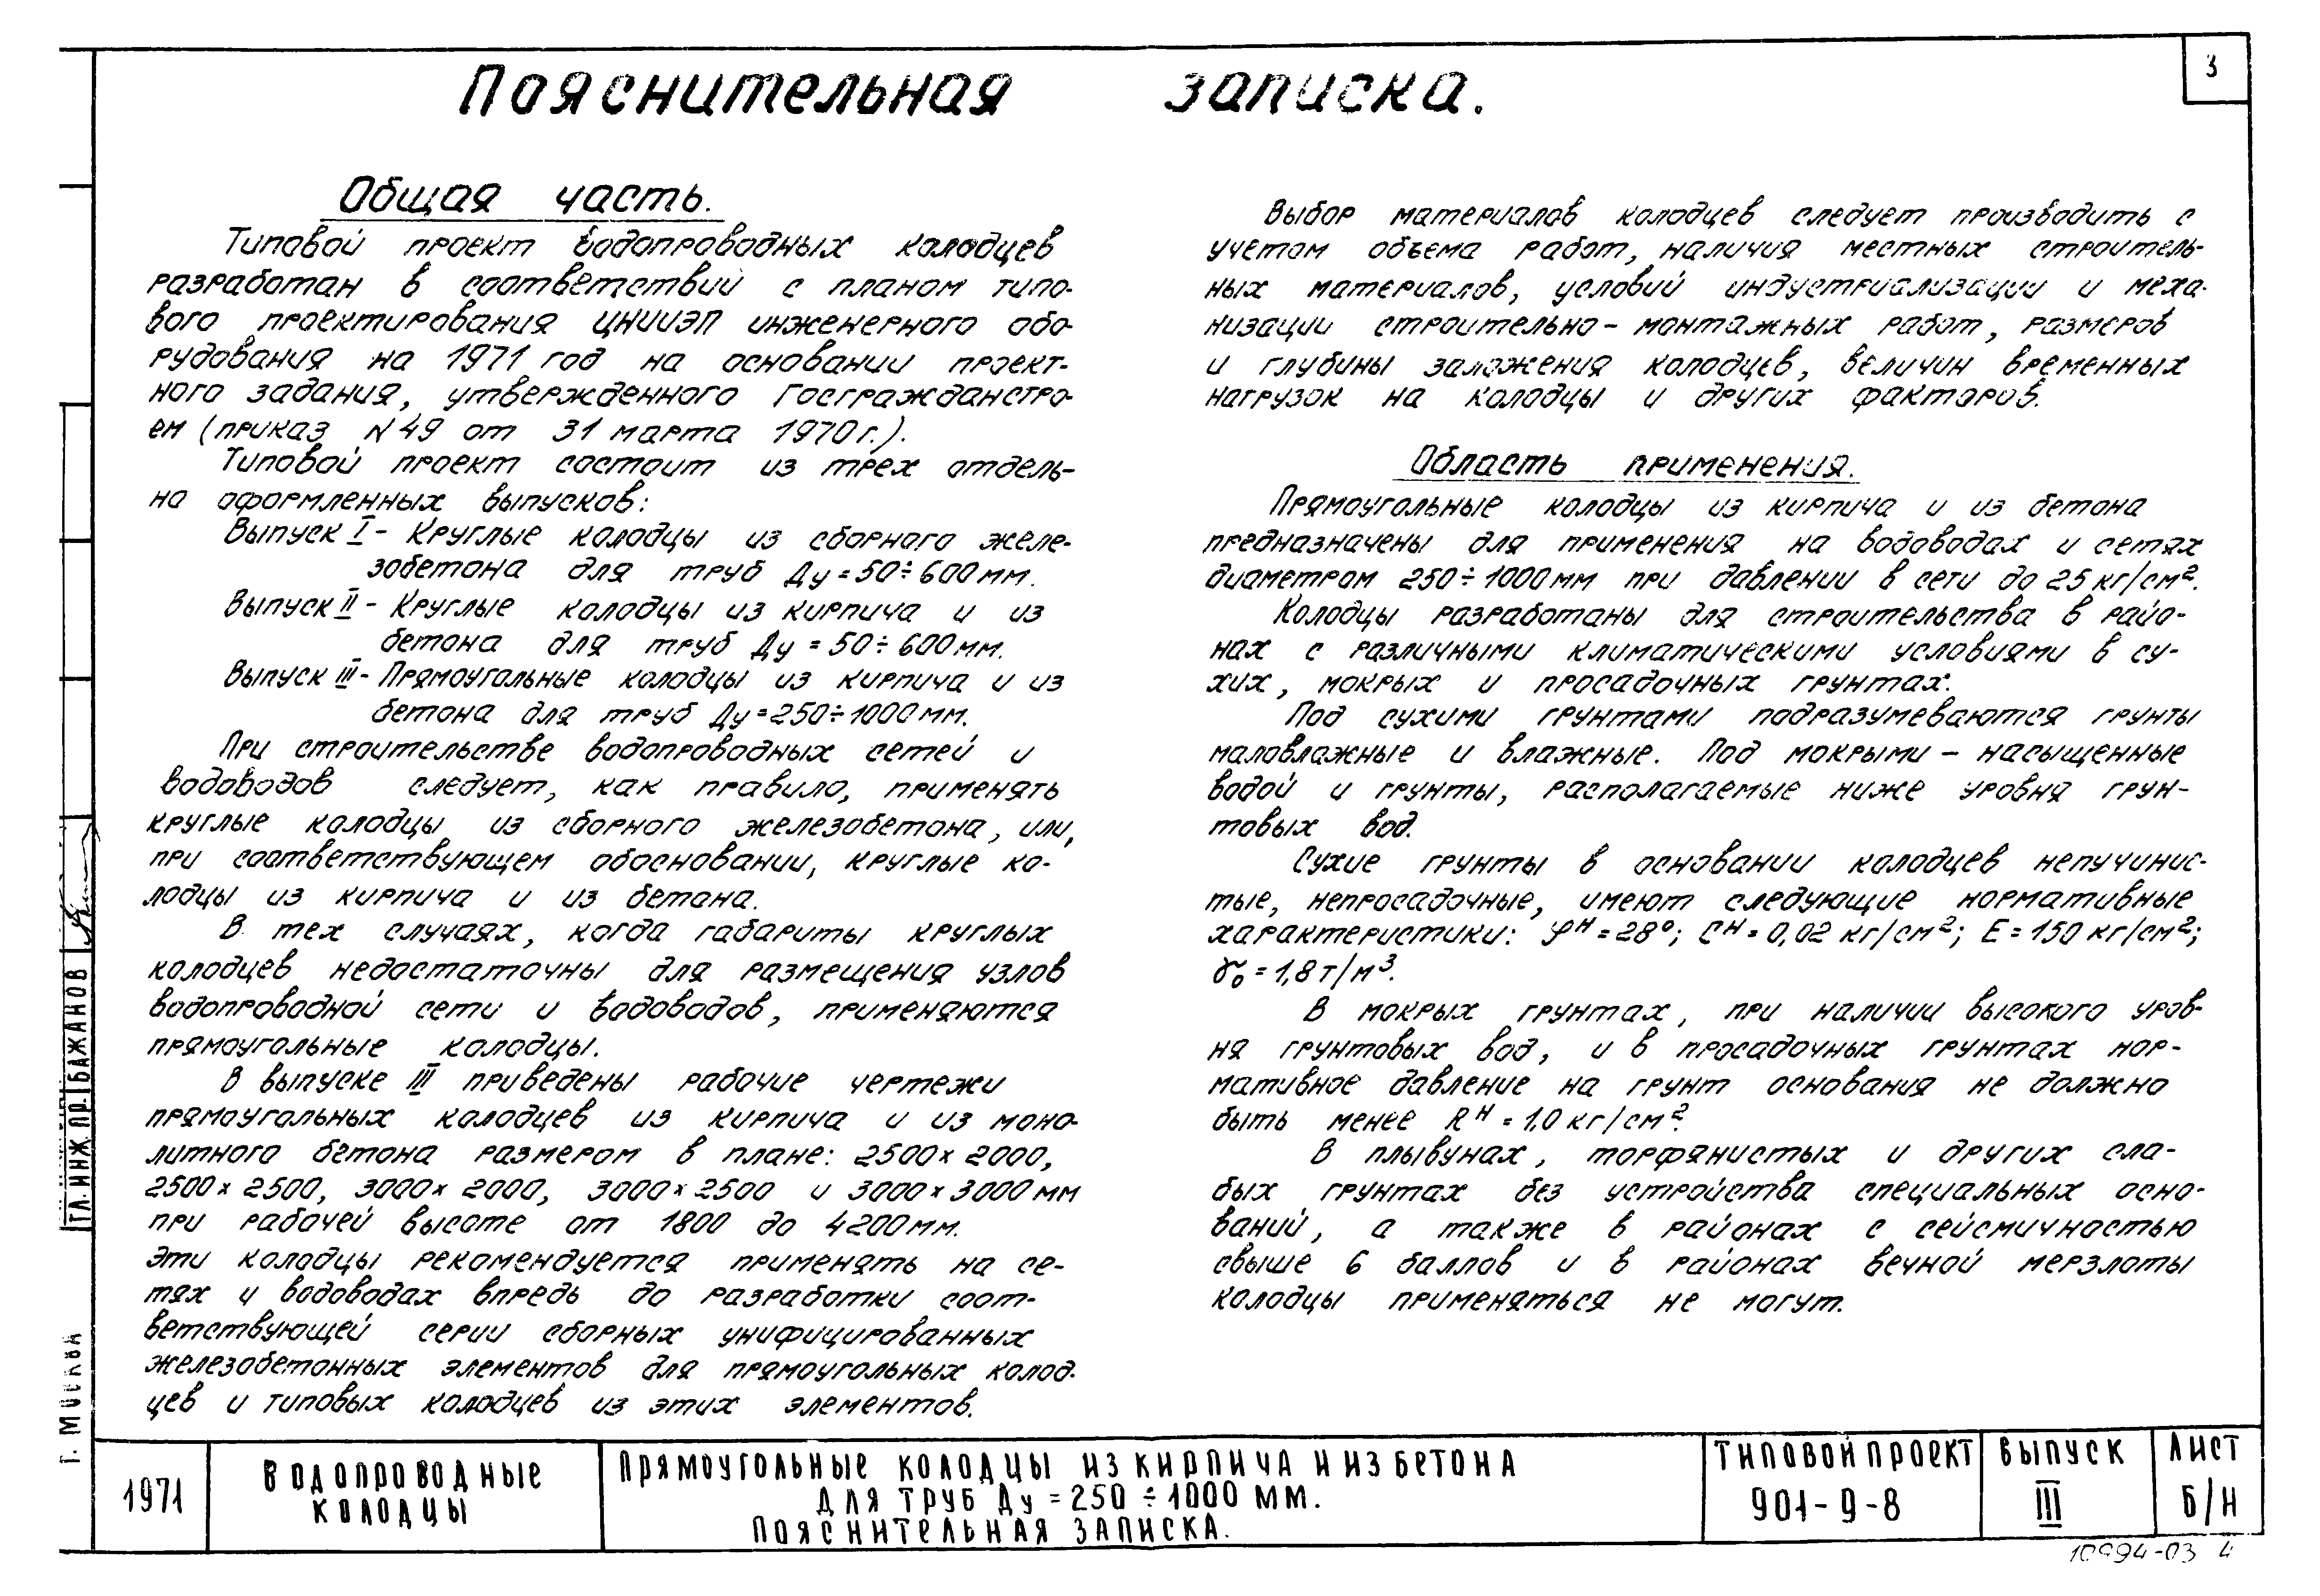 3
Пояснительная записка.
Общая часть.
Типовой проект водопроводных колодцев
разработан в соответствий с планом типо-
вого проектирования ЦНИИЭП инженерного обо-
рудования на 1971 год на основании проект-
ного задания, утвержденного Госгражданстро-
ем (приказ N 49 от 31 марта 1970г.).
Типовой проект состоит из трех отдель-
но оформленных выпусков:
Выпуск I - Круглые колодцы из сборного желе-
зобетона для труб Ду = 50÷600мм.
Выпуск II - Круглые колодцы из кирпича и из
бетона для труб Ду = 50÷600мм.
Выпуск III - Прямоугольные колодцы из кирпича и из
бетона для труб Ду = 250÷1000мм.
При строительстве водопроводных сетей и
водоводов следует, как правило, применять
круглые колодцы из сборного железобетона, или,
при соответствующем обосновании, круглые ко-
лодцы из кирпича и из бетона.
В тех случаях, когда габариты круглых
колодцев недостаточны для размещения узлов
водопроводной сети и водоводов, применяются
прямоугольные колодцы.
В выпуске III приведены рабочие чертежи
прямоугольных колодцев из кирпича и из моно-
литного бетона размером в плане: 2500×2000,
2500×2500, 3000×2000, 3000×2500 и 3000×3000мм
при рабочей высоте от 1800 до 4200мм.
Эти колодцы рекомендуется применять на се-
тях и водоводах впредь до разработки соот-
ветствующей серии сборных унифицированных
железобетонных элементов для прямоугольных колод-
цев и типовых колодцев из этих элементов.
Выбор материалов колодцев следует производить с
учетом объема работ, наличия местных строитель-
ных материалов, условий индустриализации и меха-
низации строительно-монтажных работ, размеров
и глубины заложения колодцев, величин временных
нагрузок на колодцы и других факторов.
Область применения.
Прямоугольные колодцы из кирпича и из бетона
предназначены для применения на водоводах и сетях
диаметром 250÷1000мм при давлении в сети до 25 кг/см².
Колодцы разработаны для строительства в райо-
нах с различными климатическими условиями в су-
хих, мокрых и просадочных грунтах.
Под сухими грунтами подразумеваются грунты
маловлажные и влажные. Под мокрыми - насыщенные
водой и грунты, располагаемые ниже уровня грун-
товых вод.
Сухие грунты в основании колодцев непучинис-
тые, непросадочные, имеют следующие нормативные
характеристики: φᴴ = 28°; Cᴴ = 0,02 кг/см²; E = 150 кг/см²;
γ₀ = 1,8 т/м³.
В мокрых грунтах, при наличии высокого уров-
ня грунтовых вод, и в просадочных грунтах нор-
мативное давление на грунт основания не должно
быть менее Rᴴ = 1,0 кг/см².
В плывунах, торфянистых и других сла-
бых грунтах без устройства специальных осно-
ваний, а также в районах с сейсмичностью
свыше 6 баллов и в районах вечной мерзлоты
колодцы применяться не могут.
ГЛ. ИНЖ. ПР. БАЖАНОВ
Г. МОСКВА
1971
ВОДОПРОВОДНЫЕ
КОЛОДЦЫ
ПРЯМОУГОЛЬНЫЕ КОЛОДЦЫ ИЗ КИРПИЧА И ИЗ БЕТОНА
ДЛЯ ТРУБ Ду = 250 ÷ 1000 ММ.
ПОЯСНИТЕЛЬНАЯ ЗАПИСКА.
ТИПОВОЙ ПРОЕКТ
901-9-8
ВЫПУСК
III
ЛИСТ
Б/Н
10994-03 4